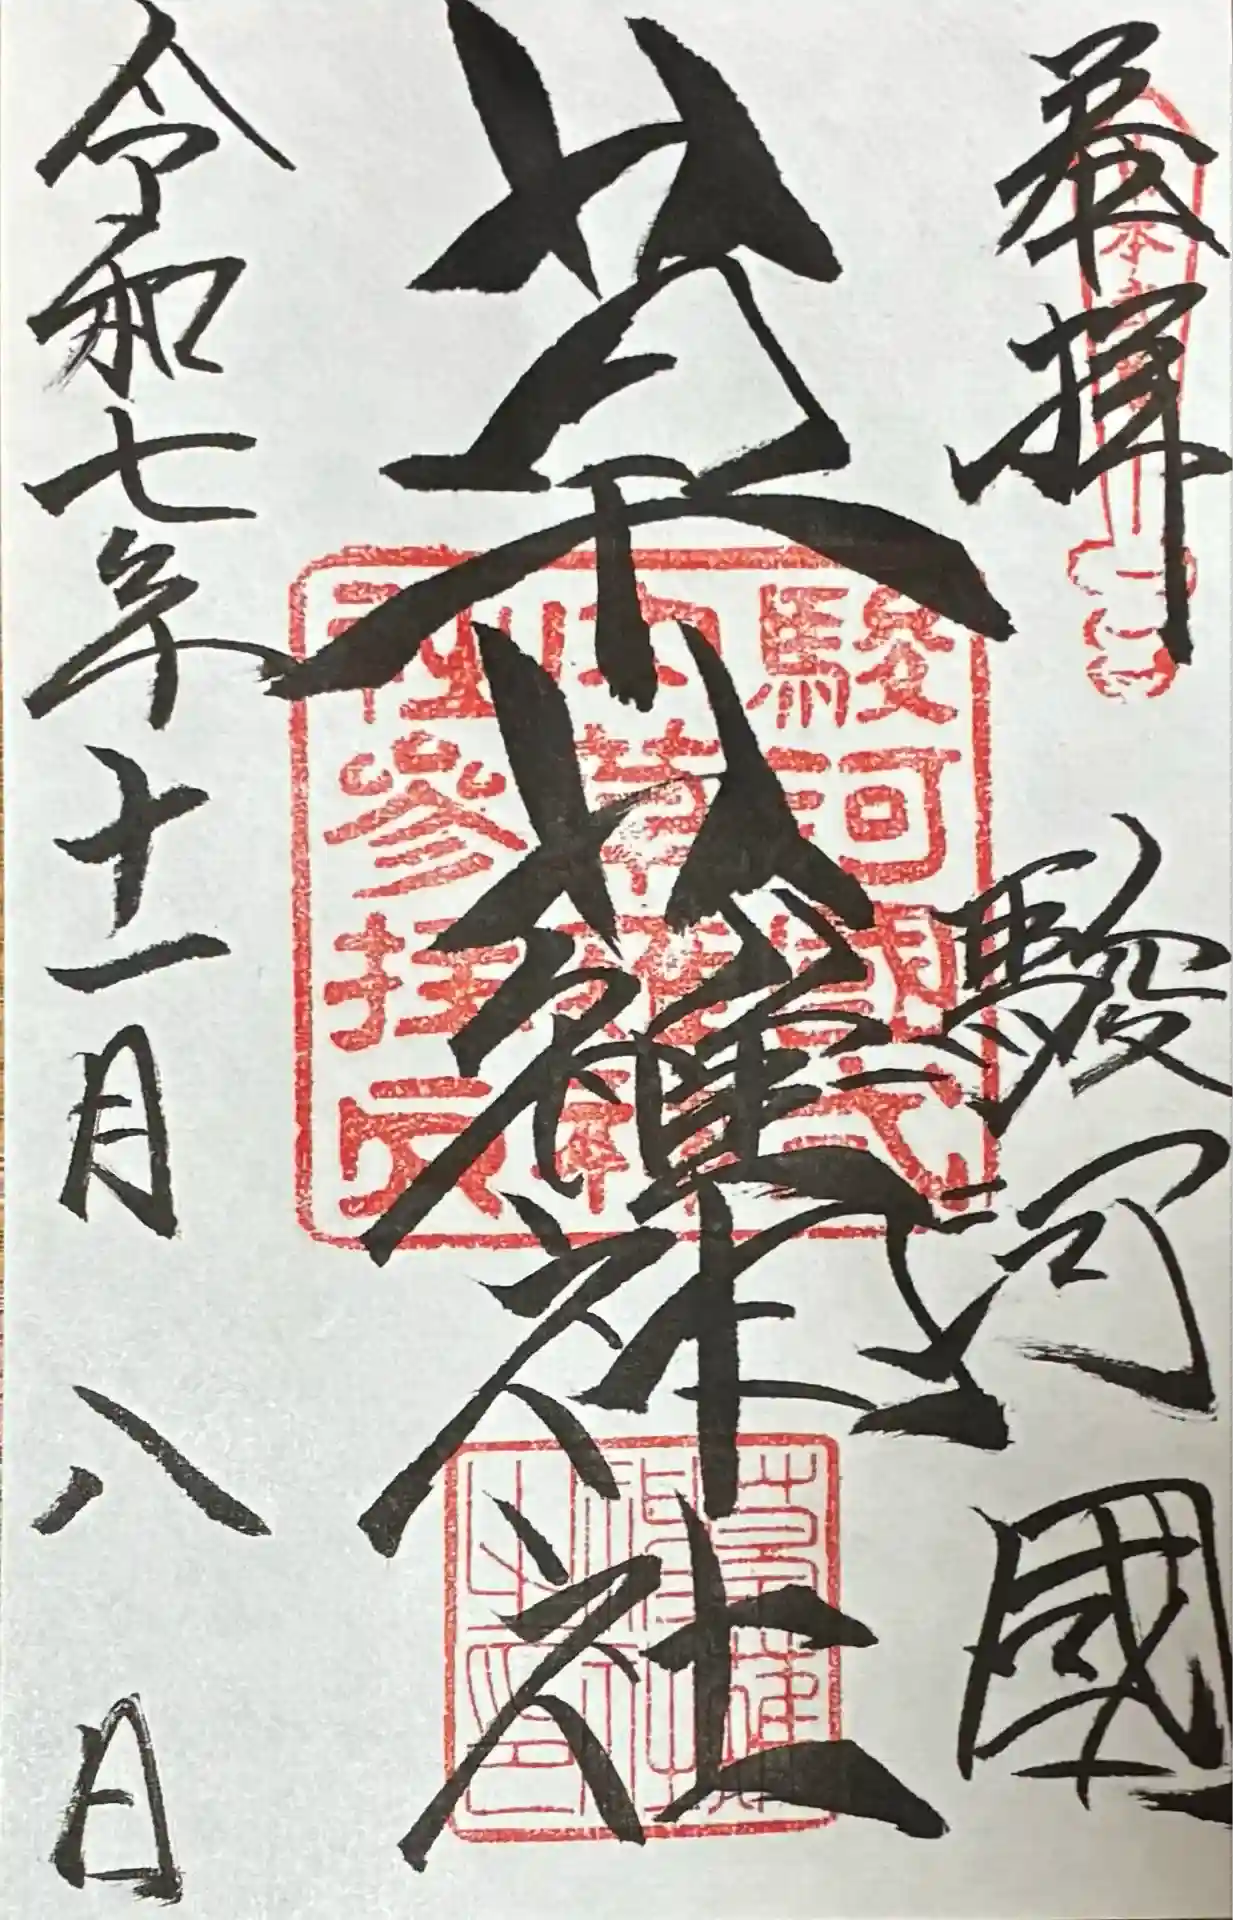 奉拝 駿河國
草薙神社
令和七年十一月八日
駿河國式
内草薙神
社參拝印
草薙
神社
之印